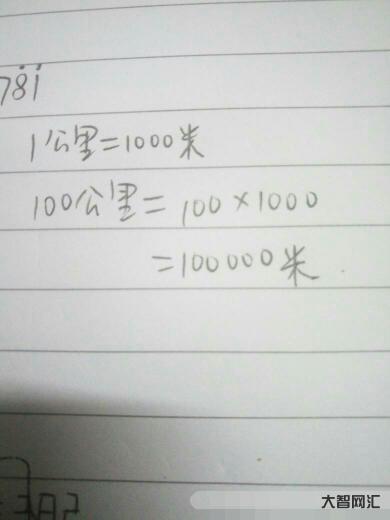 781
1公里=1000米
100公里=100×1000
=100000米
大智网汇